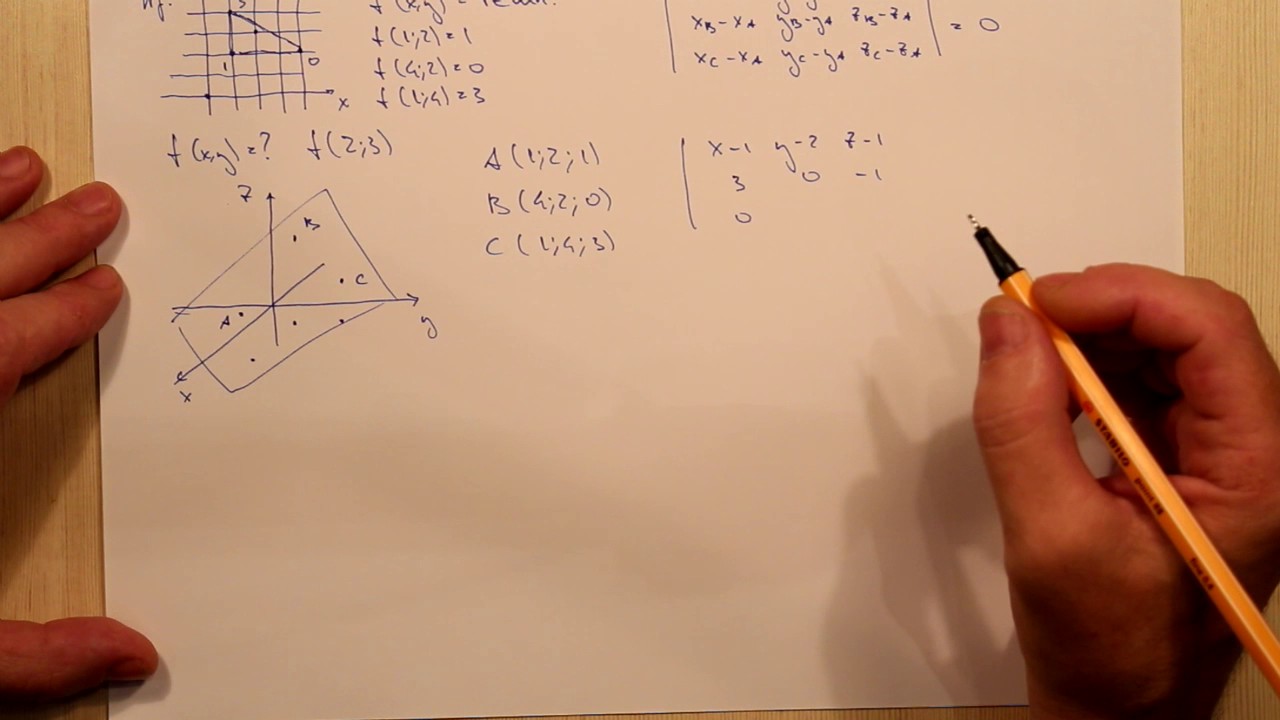 3
1
0
x
f(1;2)=1
f(4;2)=0
f(1;4)=3
x_B-x_A y_B-y_A z_B-z_A
x_C-x_A y_C-y_A z_C-z_A
= 0
f(x,y)=? f(2;3)
A(1;2;1)
B(4;2;0)
C(1;4;3)
x-1 y-2 z-1
3 0 -1
0
z
B
C
A
y
x
STABILO